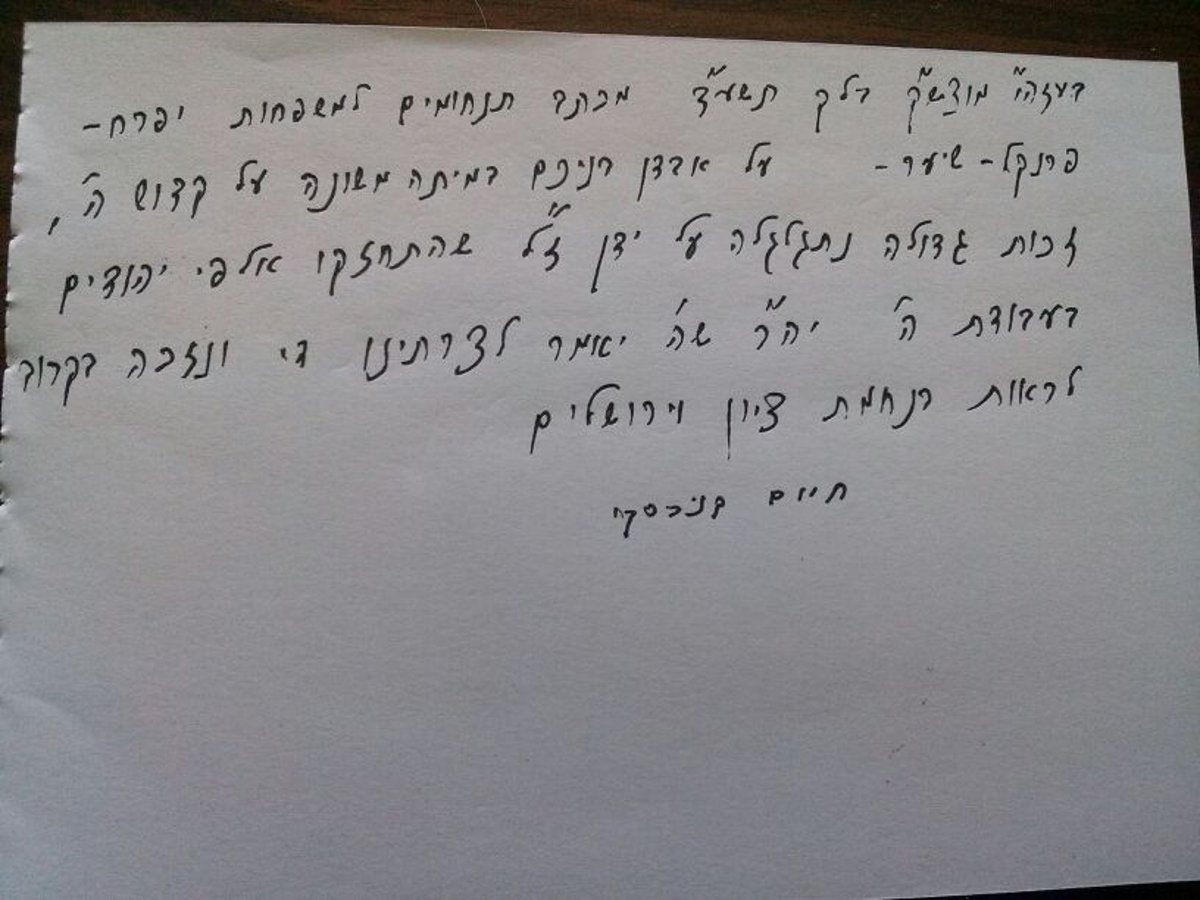 בעזהי״ מוצש״ק בלק תשע״ד מכתב תנחומים למשפחות יפרח-
פרנקל - שיער - על אבדן בניכם במיתה משונה על קדוש ה׳,
זכות גדולה נתגלגלה על ידן ז״ל שהתחזקו אלפי יהודים
בעבודת ה׳ יה״ר שה׳ יאמר לצרתינו די ונזכה בקרוב
לראות בנחמת ציון וירושלים
חיים קניבסקי